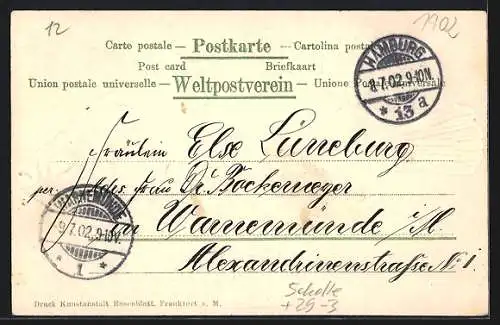 12
1902
Carte postale — Postkarte — Cartolina postale
Post card Briefkaart
Union postale universelle — Weltpostverein — Unione Postale universale
HAMBURG
8.7.02.9-10N.
* 13a
Fräulein Else Lüneburg
per. Adr. Frau Dr. Bockemeyer
WARNEMÜNDE
9.7.02.9-10V.
* 1 *
in Warnemünde i/M.
Alexandrinenstrasse No 1.
Druck Kunstanstalt Rosenblatt, Frankfurt a. M.
Scholle
+29-3